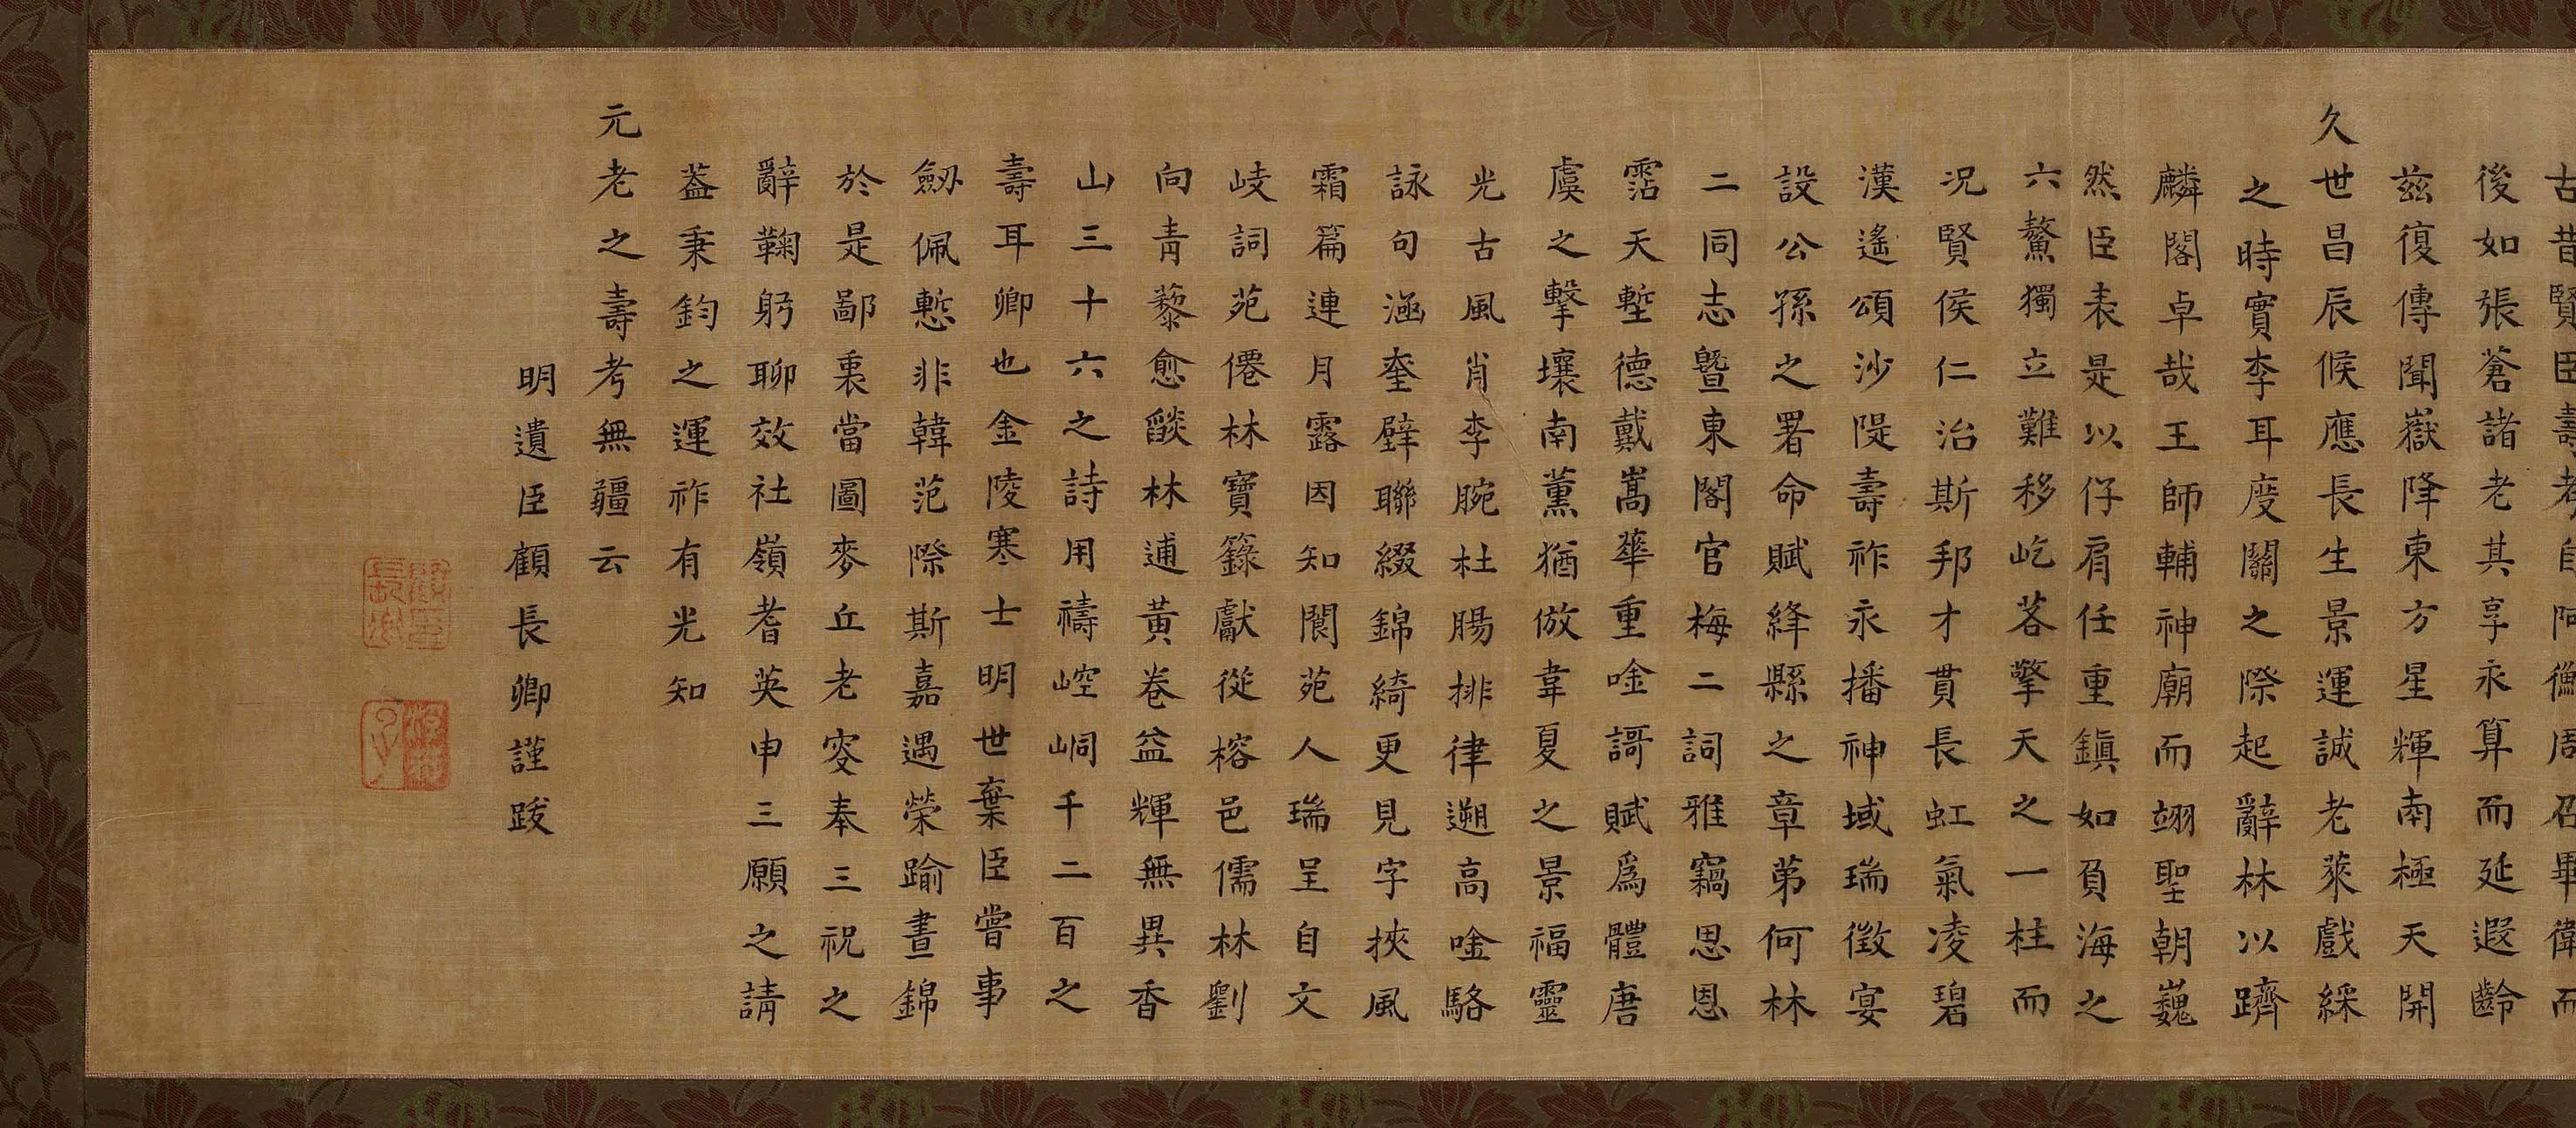 古昔賢臣壽考自阿衡周召畢衛而
後如張蒼諸老其享永算而延遐齡
茲復傳聞嶽降東方星輝南極天開
久世昌辰候應長生景運誠老萊戲綵
之時實李耳度關之際起辭林以躋
麟閣卓哉王師輔神廟而翊聖朝巍
然臣表是以仔肩任重鎮如負海之
六鰲獨立難移屹若擎天之一柱而
況賢侯仁治斯邦才貫長虹氣凌碧
漢遙頌沙隄壽祚永播神域瑞徵宴
設公孫之署命賦絳縣之章第何林
二同志暨東閣官梅二詞雅竊思恩
霑天塹德戴嵩華重唫謌賦爲體唐
虞之擊壤南薰猶倣韋夏之景福靈
光古風肖李腕杜腸排律遡高唫駱
詠句涵奎壁聯綴錦綺更見字挾風
霜篇連月露因知閬苑人瑞呈自文
岐詞苑僊林寶籙獻從榕邑儒林劉
向青藜愈燄林逋黃卷益輝無異香
山三十六之詩用禱崆峒千二百之
壽耳卿也金陵寒士明世棄臣嘗事
劒佩慙非韓范際斯嘉遇榮踰晝錦
於是鄙裏當圖麥丘老叜奉三祝之
辭鞠躬聊效社嶺耆英申三願之請
葢秉鈞之運祚有光知
元老之壽考無疆云
明遺臣顧長卿謹跋